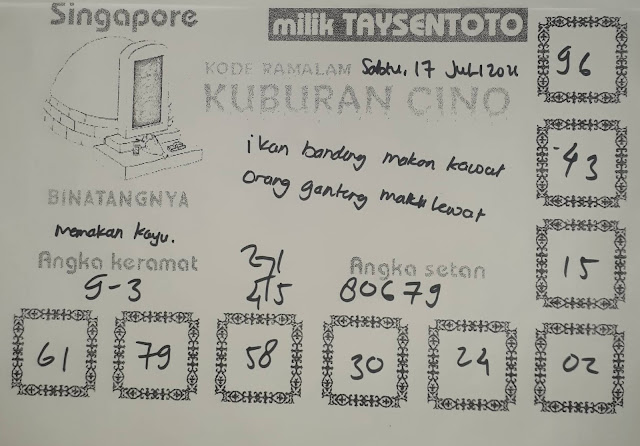 Singapore
milik TAYSENTOTO
KODE RAMALAM Sabtu, 17 Juli 2021
KUBURAN CINO
ikan bandeng makan kawat
orang ganteng lewat
BINATANGNYA
memakan kayu.
Angka keramat
9-3
271
415
Angka setan
80679
96
43
15
61 79 58 30 24 02